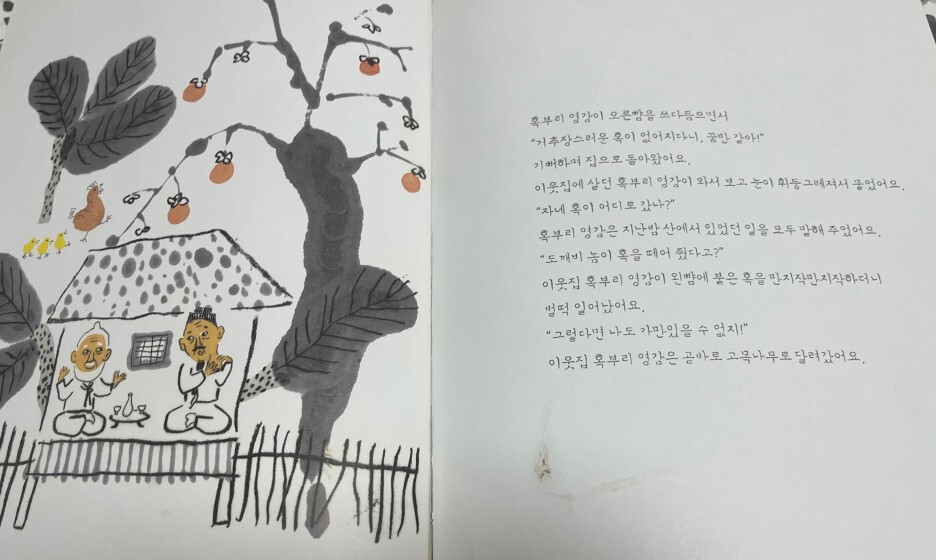 혹부리 영감이 오른뺨을 쓰다듬으면서
"거추장스러운 혹이 없어지다니, 꿈만 같아!"
기뻐하며 집으로 돌아왔어요.
이웃집에 살던 혹부리 영감이 와서 보고 눈이 휘둥그레져서 물었어요.
"자네 혹이 어디로 갔나?"
혹부리 영감은 지난밤 산에서 있었던 일을 모두 말해 주었어요.
"도깨비 놈이 혹을 떼어 줬다고?"
이웃집 혹부리 영감이 왼뺨에 붙은 혹을 만지작만지작하더니
벌떡 일어났어요.
"그렇다면 나도 가만있을 수 없지!"
이웃집 혹부리 영감은 곧바로 고목나무로 달려갔어요.